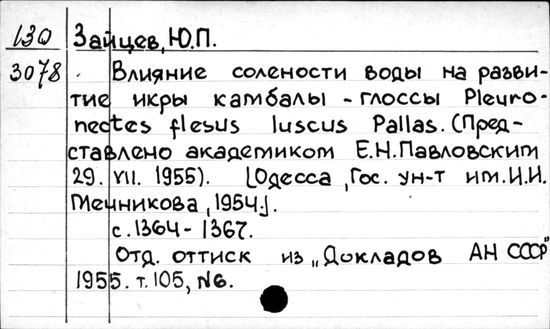 130 Зайцев, Ю.П.
3078 Влияние солености воды на разви-
тие икры камбалы - глоссы Pleuro-
nectes flesus luscus Pallas. (Пред-
ставлено академиком Е.Н.Павловским
29. VII. 1955). [Одесса, Гос. ун-т им.И.И.
Мечникова, 1954].
с. 1364 - 1367.
Отд. оттиск из „Докладов АН СССР"
1955. т. 105, №6.